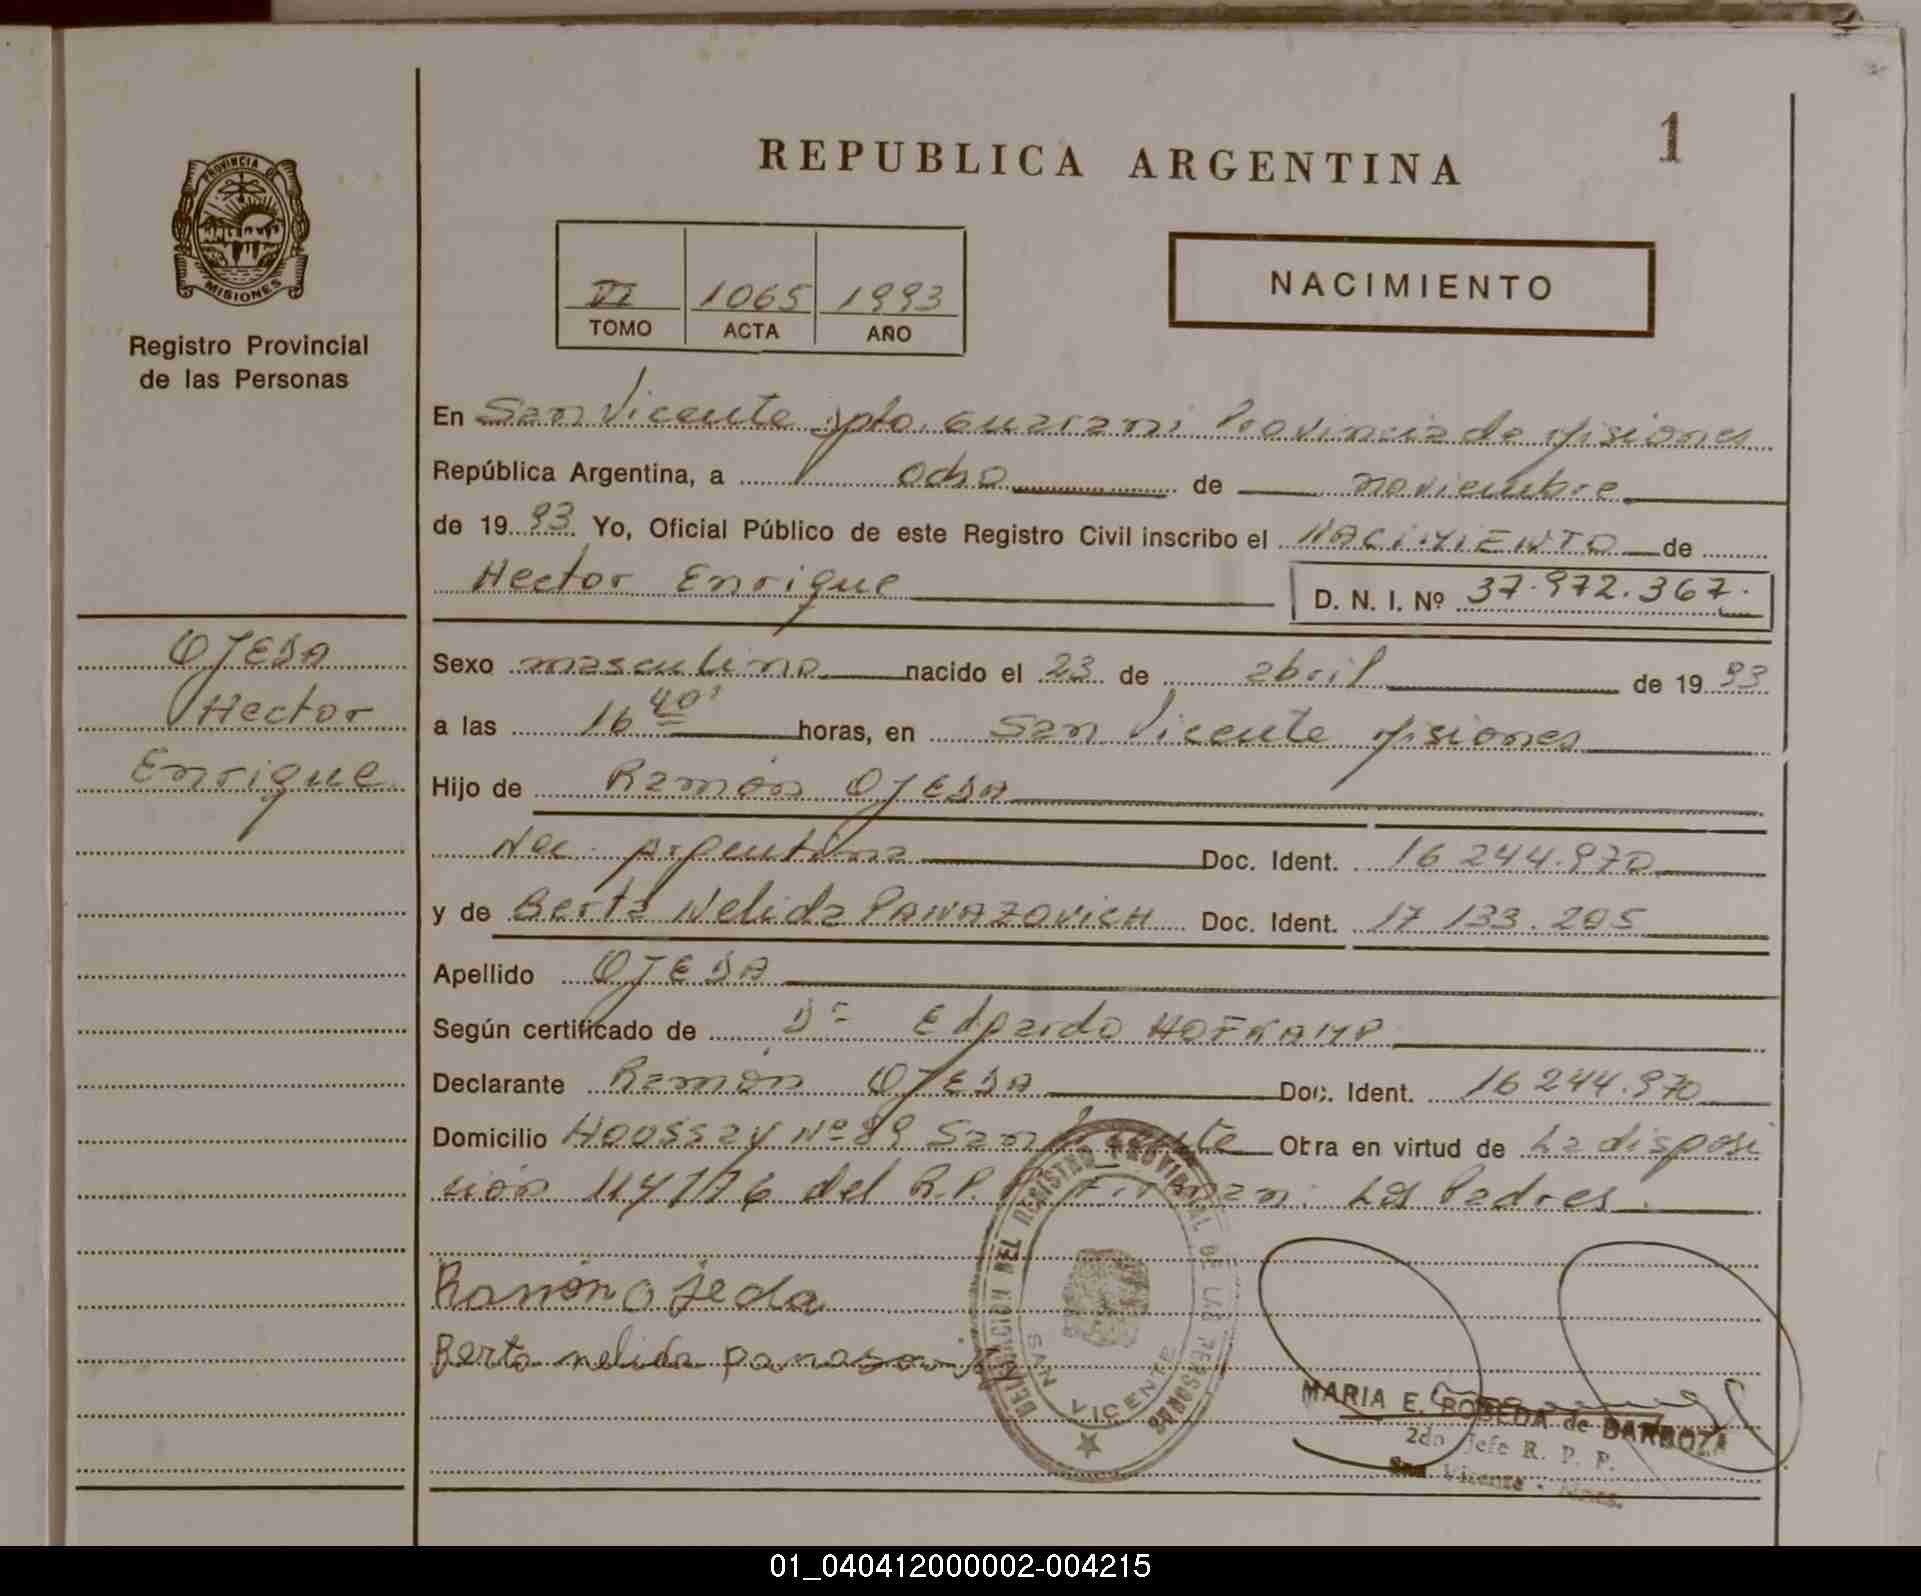 PROVINCIA DE
MISIONES
Registro Provincial
de las Personas
OJEDA
Hector
Enrique
REPUBLICA ARGENTINA
1
VI 1065 1993
TOMO ACTA AÑO
NACIMIENTO
En San Vicente Dpto. Guarani Provincia de Misiones
República Argentina, a ocho de noviembre
de 1993 Yo, Oficial Público de este Registro Civil inscribo el NACIMIENTO de
Hector Enrique D. N. I. Nº 37.972.367.
Sexo masculino nacido el 23 de abril de 1993
a las 16 40' horas, en San Vicente Misiones
Hijo de Ramón OJEDA
Nac. Argentina Doc. Ident. 16 244.970
y de Berta Nelida PANAZOVICH Doc. Ident. 17 133.205
Apellido OJEDA
Según certificado de Dr Edgardo HOFKAMP
Declarante Ramón OJEDA Doc. Ident. 16 244.970
Domicilio Houssay Nº 89 San Vicente Obra en virtud de La disposi
ción 114/76 del R.P.P. Firman: Los Padres.
Ramón Ojeda
Berta nelida
DELEGACION DEL REGISTRO PROVINCIAL DE LAS PERSONAS
SAN VICENTE
MARIA E. de BARBOZA
2do Jefe R. P. P.
San Vicente - Mnes.
01_040412000002-004215